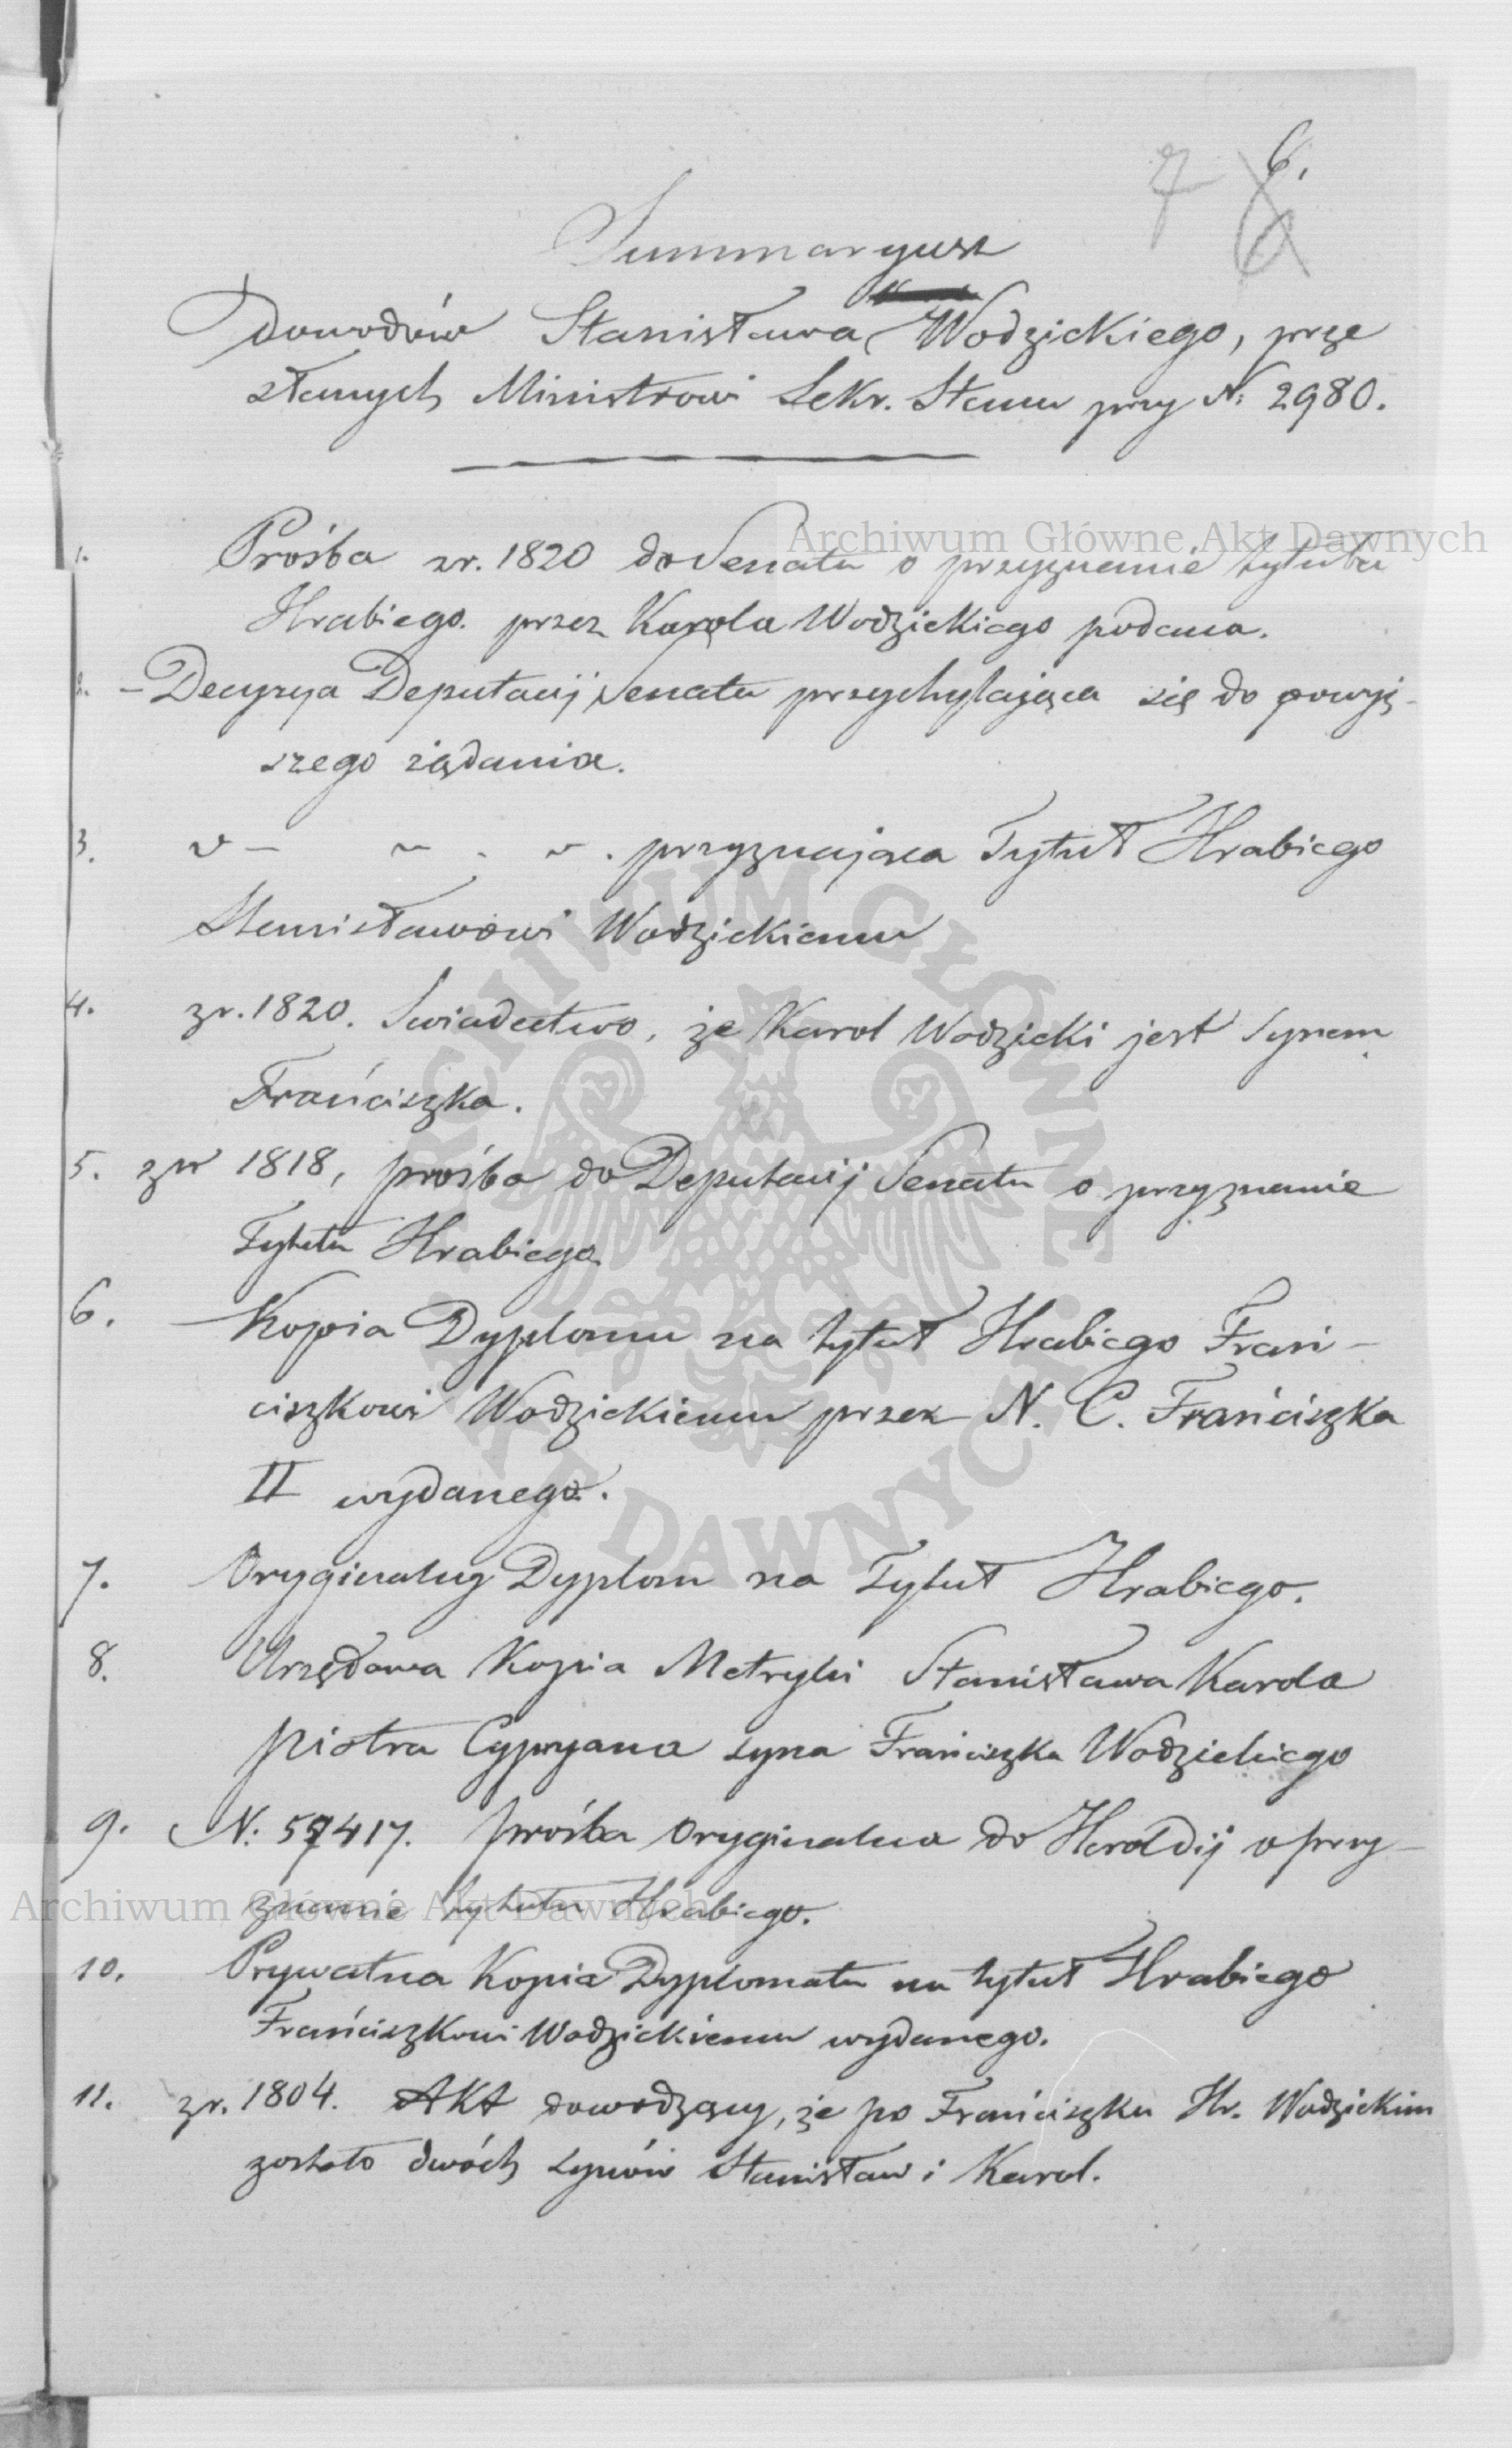 7 6.
Summaryusz
Dowodów Stanisława Wodzickiego, prze
słanych Ministrowi Sekr. Stanu przy N: 2980.
Archiwum Główne Akt Dawnych
1. Prośba zr. 1820 do Senatu o przyznanie tytułu
Hrabiego. przez Karola Wodzickiego podana.
2. – Decyzya Deputacij Senatu przychylająca się do powyż-
szego żądania.
3. " – " . " . przyznająca Tytuł Hrabiego
Stanisławowi Wodzickiemu
4. zr. 1820. Swiadectwo, że Karol Wodzicki jest Synem
Frańciszka.
5. zr 1818, prośba do Deputacij Senatu o przyznanie
Tytułu Hrabiego.
6. Kopia Dyplomu na tytuł Hrabiego Frań-
ciszkowi Wodzickiemu przez N. C. Frańciszka
II wydanego.
7. Oryginalny Dyplom na Tytuł Hrabiego.
8. Urzędowa Kopia Metryki Stanisława Karola
Piotra Cypryana syna Frańciszka Wodzickiego
9. N: 57417. prośba Oryginalna do Heroldij o przy-
znanie tytułu Hrabiego.
Archiwum Główne Akt Dawnych
10. Prywatna Kopia Dyplomatu na tytuł Hrabiego
Frańciszkowi Wodzickiemu wydanego.
11. zr. 1804. Akt dowodzący, że po Frańciszku Hr. Wodzickim
zostało dwóch synów Stanisław i Karol.
ARCHIWUM GŁÓWNE AKT DAWNYCH